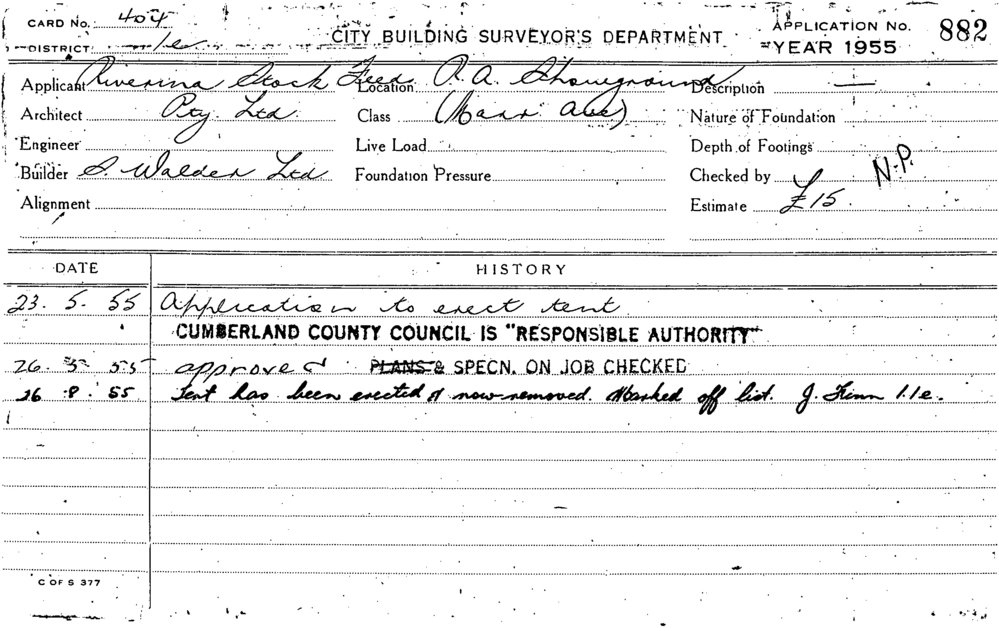 CARD No. 404 CITY BUILDING SURVEYOR'S DEPARTMENT APPLICATION No. 882
DISTRICT 1/e YEAR 1955
Applicant Riverina Stock Feed Location R. A. Showground Description —
Architect Pty. Ltd. Class (Mann Ave) Nature of Foundation
Engineer Live Load Depth of Footings
Builder S. Walder Ltd Foundation Pressure Checked by N.P.
Alignment Estimate £15.
DATE HISTORY
23. 5. 55 Application to erect tent
CUMBERLAND COUNTY COUNCIL IS "RESPONSIBLE AUTHORITY"
26. 5 55 approved PLANS & SPECN. ON JOB CHECKED
26 8. 55 Tent has been erected & now removed. Marked off list. J. Finn 1/e.
C OF S 377